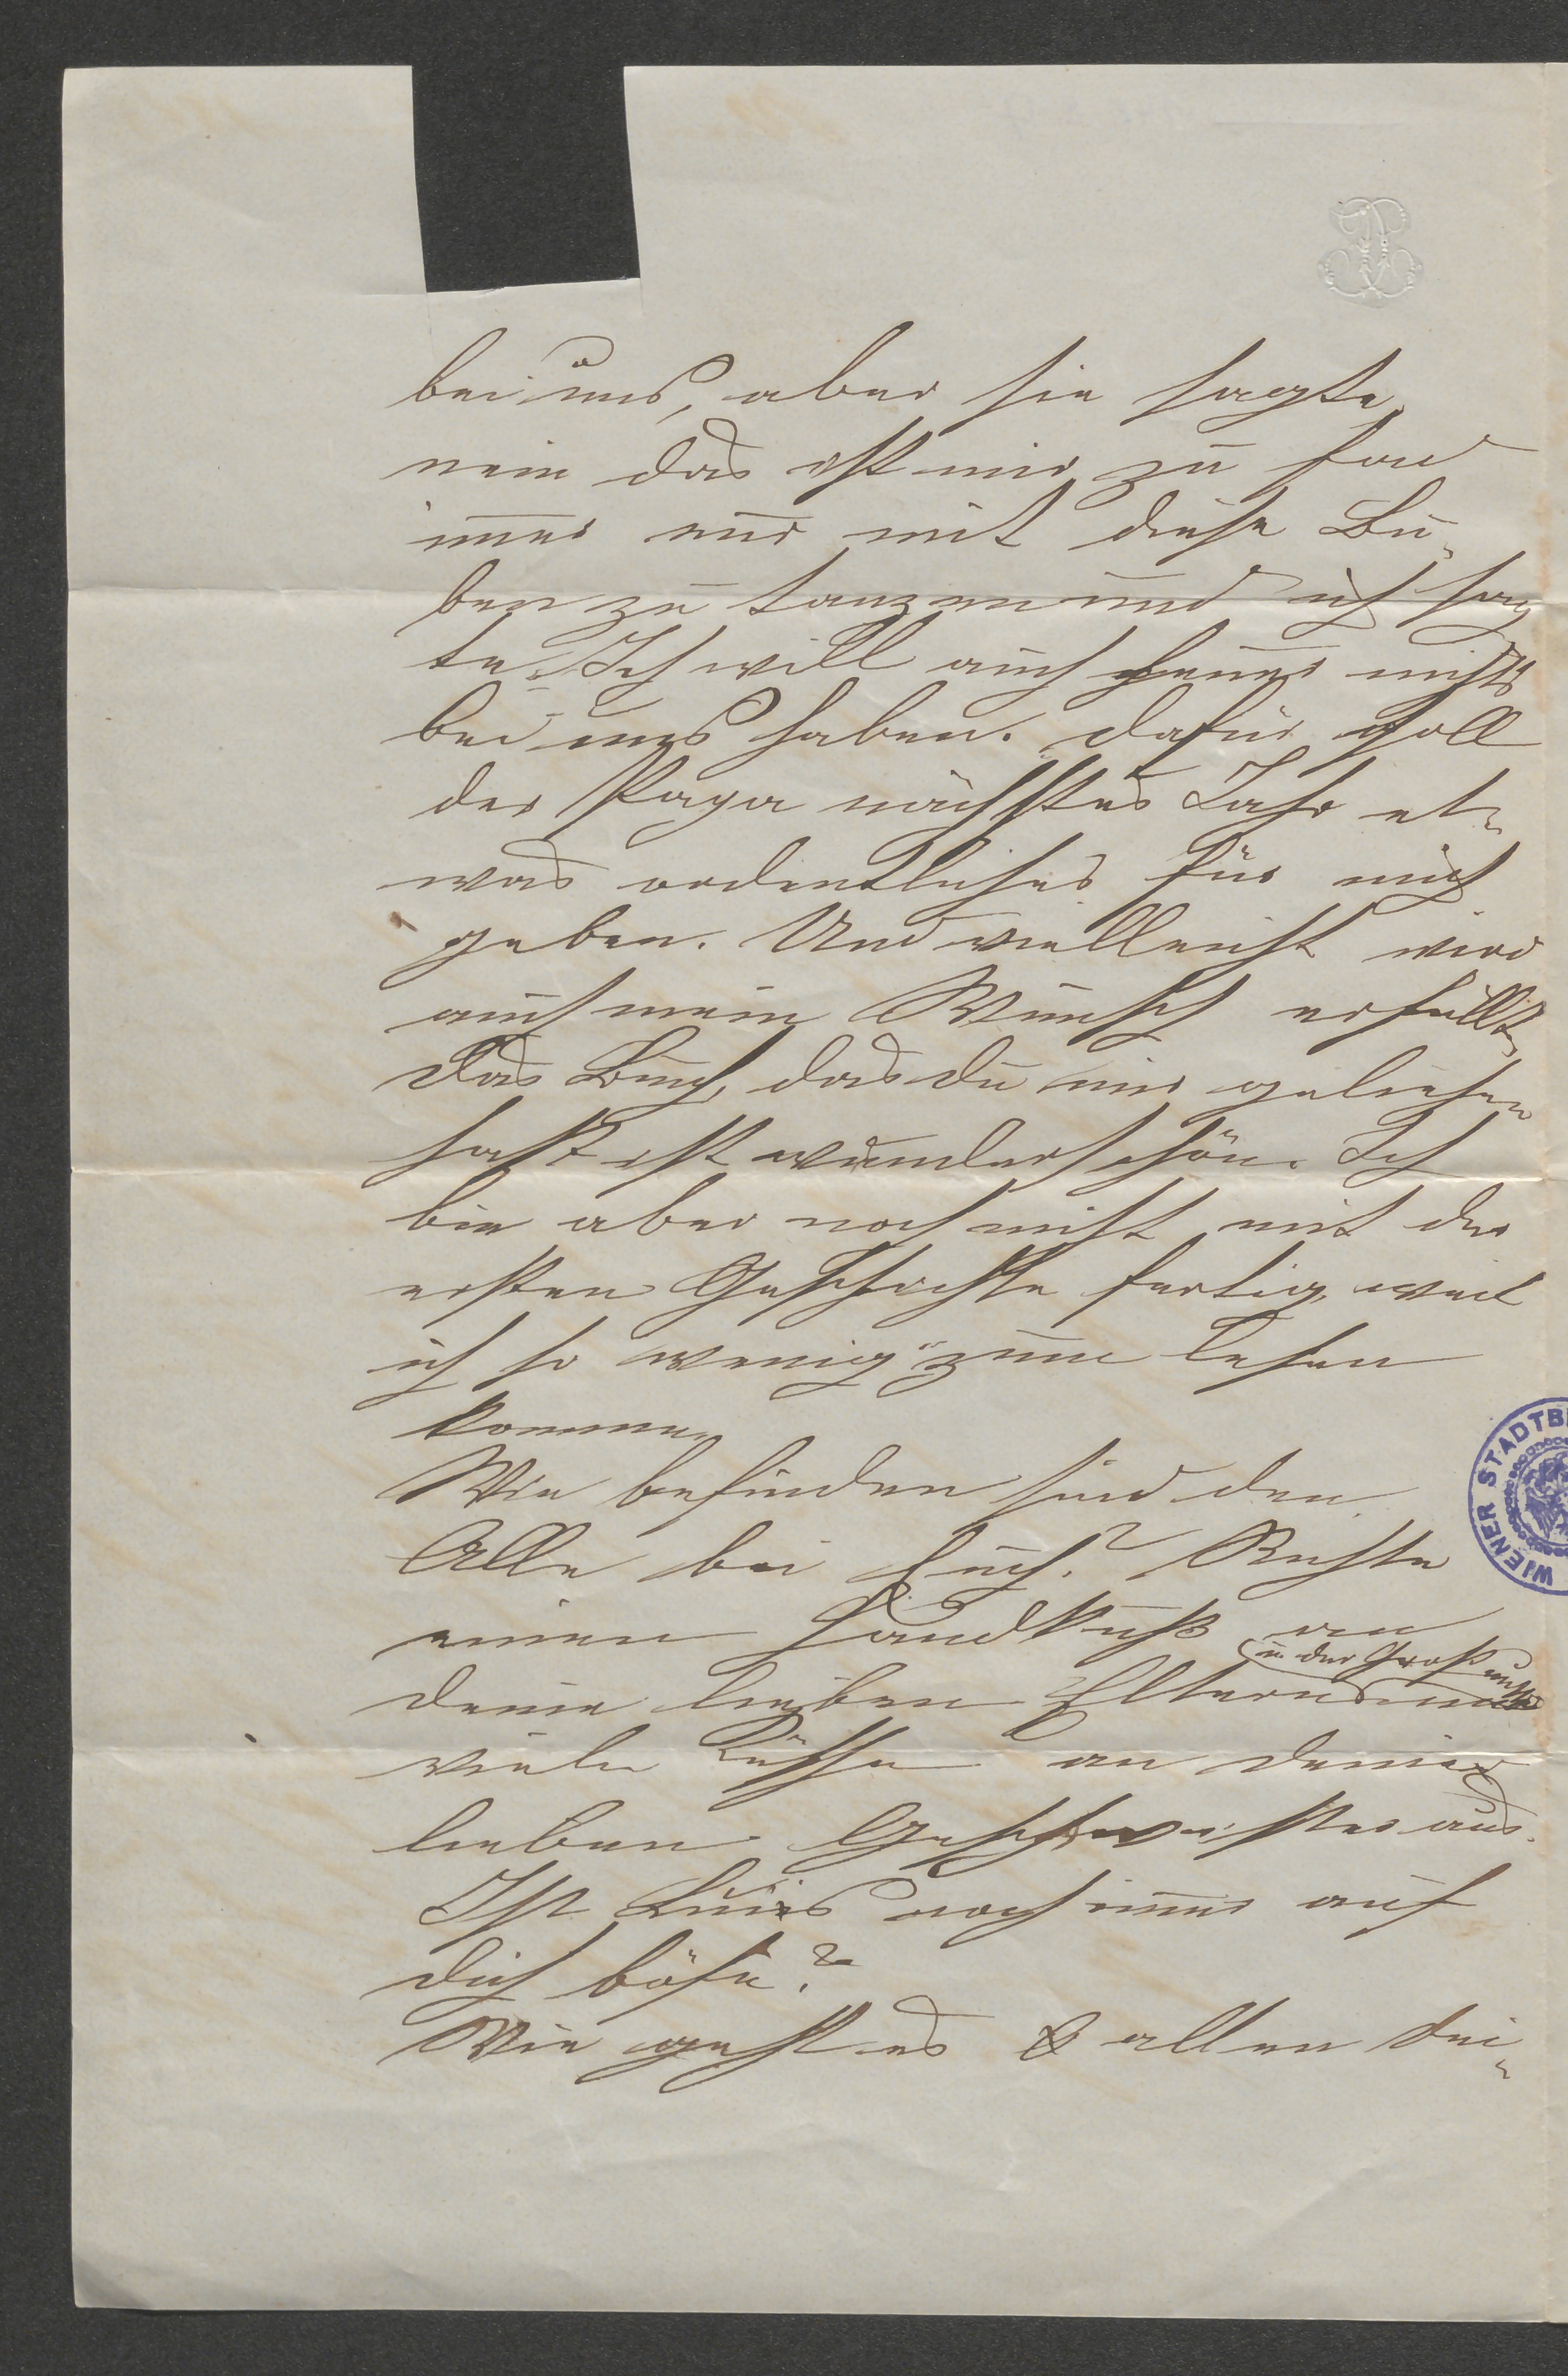 bei uns, aber sie sagte
nein das ist mir zu fad
immer nur mit diese Bu¬
ben zu tanzen und ich sag
te Ich will auch heuer nichts
bei uns haben. dafür soll
der Papa nächstes Jahr et¬
was ordentliches für mich
geben. Und vielleicht wird
auch mein Wunsch erfüllt
Das Buch, das du mir geliehen
hast ist wunderschön. Ich
bin aber noch nicht mit der
ersten Geschichte fertig, weil
ich so wenig zum lesen
komme.
Wie befinden sind den
Alle bei Euch? Richte
einen Handkuß an
deine lieben Eltern u der Großmutter
viele Küsse an deine
lieben Geschwister aus.
Ist Luis noch immer auf
dich böse?
Wie geht es allen dei¬
WIENER STADTB